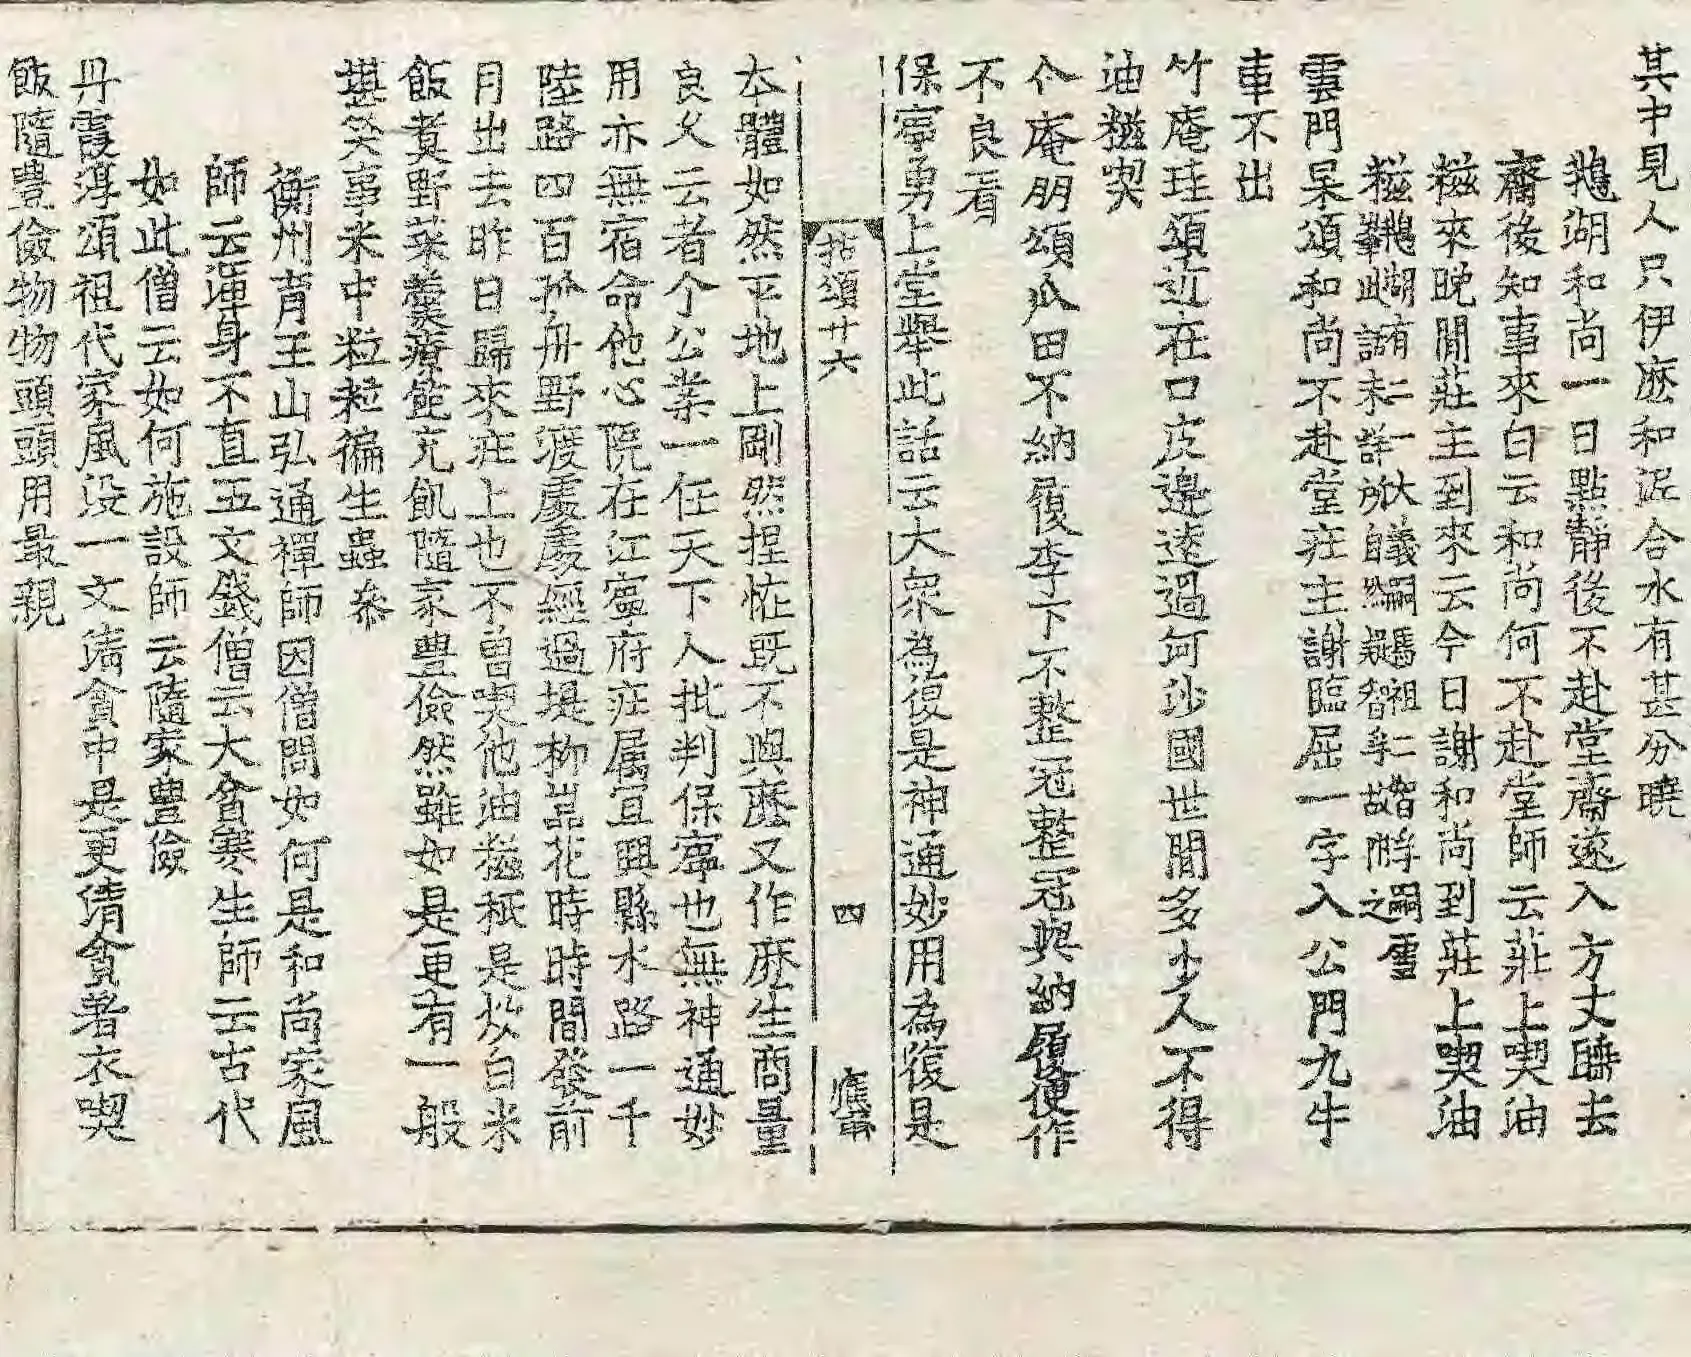 其中見人只伊麽和泥合水有甚分曉
鵝湖和尚一日點靜後不赴堂齋遂入方丈睡去
齋後知事來白云和尚何不赴堂師云莊上喫油
糍來晚閒莊主到來云今日謝和尚到莊上喫油
糍 鵝湖有二一大義嗣馬祖二智孚嗣雪
峯此話未詳所自然疑智孚故附之
雲門杲頌和尚不赴堂莊主謝臨屈一字入公門九牛
車不出
竹庵珪頌近在口皮邊遠過河沙國世間多少人不得
油糍喫
仐庵朋頌瓜田不納履李下不整冠整冠與納履便作
不良看
保寧勇上堂舉此話云大衆為復是神通妙用為復是
拈頌廿六 四
本體如然平地上剛然捏恠旣不與麽又作麽生商量
良久云者个公業一任天下人批判保寧也無神通妙
用亦無宿命他心院在江寧府庄属宜興縣水路一千
陸路四百孤舟野渡處處經過堤柳岩花時時間發前
月出去昨日歸來莊上也不曾喫他油糍秖是炊白米
飯煑野菜羹療飢充飢隨家豊儉然雖如是更有一般
堪笑事米中粒粒徧生蟲叅
衡州育王山弘通禪師因僧問如何是和尚家風
師云渾身不直五文錢僧云大貧寒生師云古代
如此僧云如何施設師云隨家豊儉
丹霞淳頌祖代家風没一文淸貪中是更清貪著衣喫
飯隨豊儉物物頭頭用最親